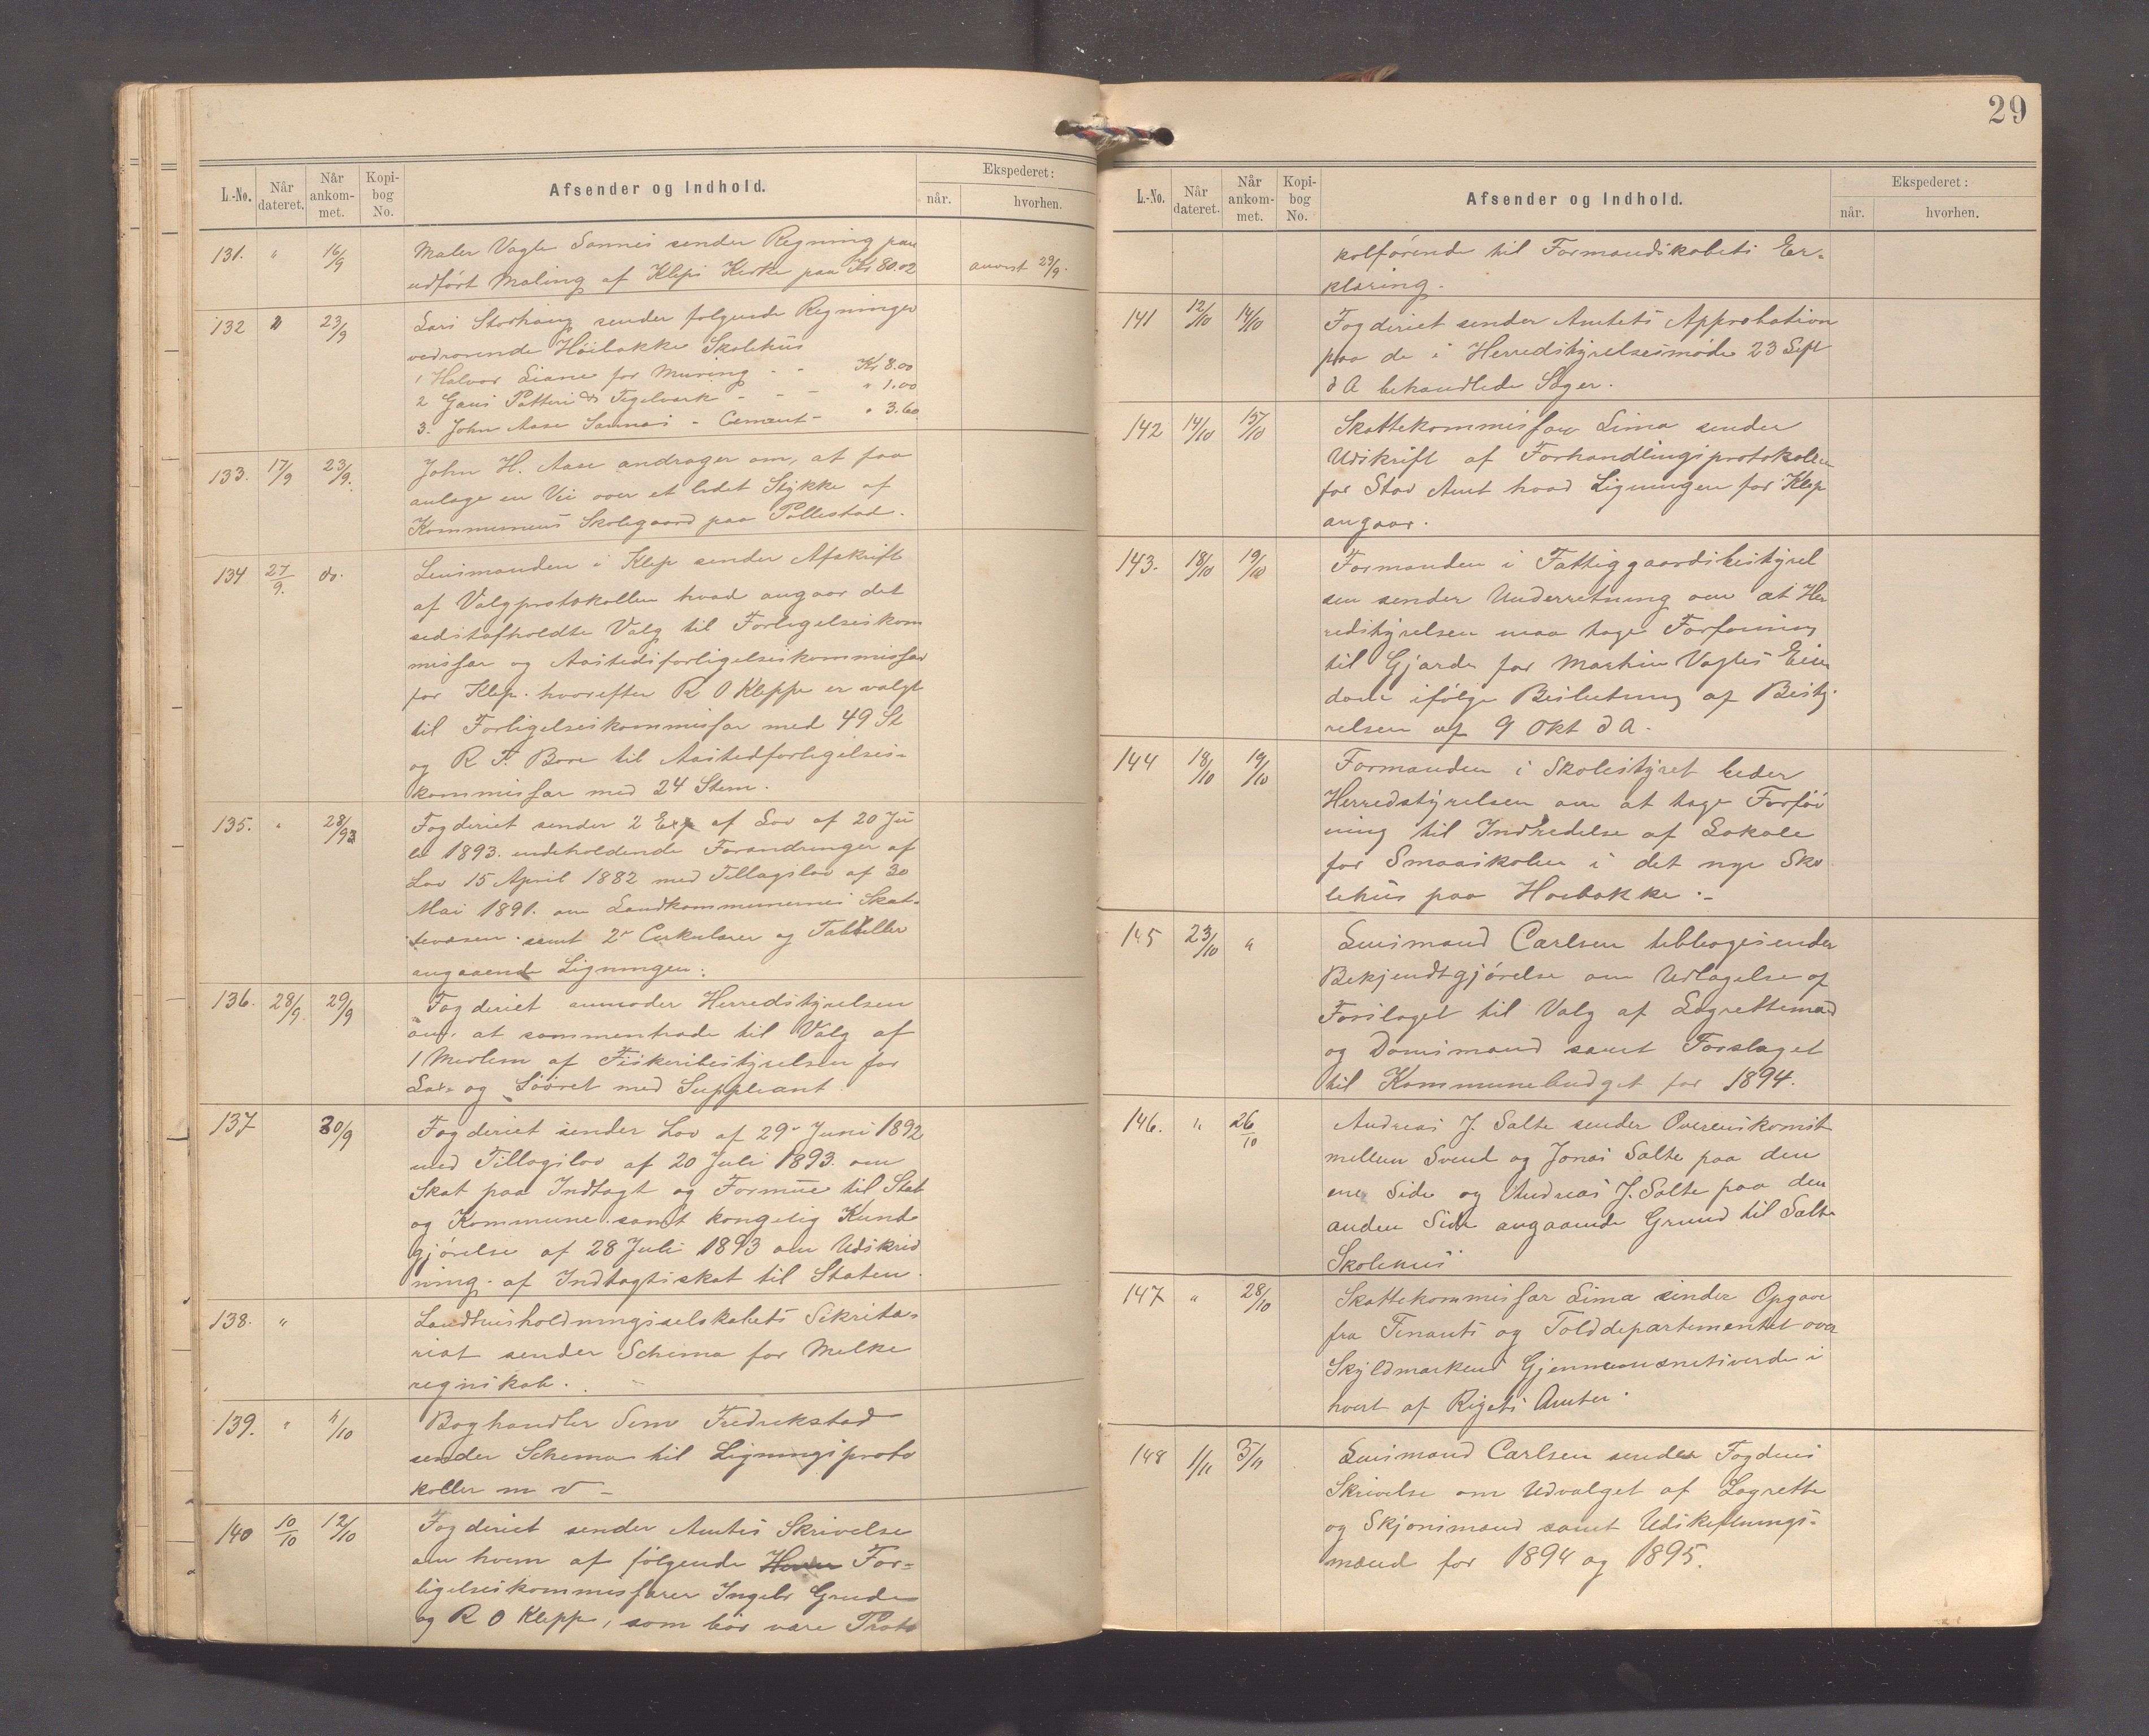 L.-No.
Når dateret.
Når ankom-met.
Kopi-bog No.
Afsender og Indhold.
Ekspederet:
når.
hvorhen.
131. " 16/9 Maler Vagle Sannes sender Regning paa
udført Maling af Kleps Kirke paa Kr 80.02 anvist 23/9.
132 " 23/9 Lars Storhaug sender følgende Regninger
vedrørende Høibakke Skolehus
1 Halvor Liane for Muring - - Kr 8.00
2 Gans Potteri & Tegelværk - - - " 1.00
3. John Aase Sannes - Cement - " 3.60
133. 17/9 23/9. John H. Aase andrager om, at faa
anlage en Vei over et lidet Stykke af
Kommunens Skolegaard paa Pollestad.
134 27/9. do. Lensmanden i Klep sender Afskrift
af Valgprotokollen hvad angaar det
sidstafholdte Valg til Forligelseskom
missær og Aastedsforligelseskommissær
for Klep. hvorefter R O Kleppe er valgt
til Forligelseskommissær med 49 St
og R F. Bore til Aastedforligelses-
kommissær med 24 Stem.
135. " 28/93 Fogderiet sender 2 Exp af Lov af 20 Ju
li 1893. indeholdende Forandringer af
Lov 15 April 1882 med Tillægslov af 30
Mai 1891. om Landkommunernes Skat-
tevæsen. samt 2 Cirkulærer og Tabeller
angaaende Ligningen.
136. 28/9. 29/9 Fogderiet anmoder Herredstyrelsen
om. at sammentræde til Valg af
1 Medlem af Fiskeribestyrelsen for
Lax- og Søøret med Suppleant
137 30/9 Fogderiet sender Lov af 29 Juni 1892
med Tillægslov af 20 Juli 1893. om
Skat paa Indtægt og Formue til Stat
og Kommune. samt kongelig Kund
gjørelse af 28 Juli 1893 om Udskriv
ning. af Indtægtsskat til Staten.
138. " Landhusholdningsselskabets Sekreta-
riat sender Schema for Melke
regnskab.
139. " 4/10 Boghandler Sem Fredrekstad
sender Schema til Ligningsproto
koller m v -
140 10/10 12/10 Fogderiet sender Amtets Skrivelse
om hvem af følgende For-
ligelseskommissærer Ingebr Grude
og R O Kleppe, som bør være Proto
29
L.-No.
Når dateret.
Når ankom-met.
Kopi-bog No.
Afsender og Indhold.
Ekspederet:
når.
hvorhen.
kolførende til Formandskabets Er-
klæring.
141 12/10 14/10 Fogderiet sender Amtets Approbation
paa de i Herredstyrelsesmøde 23 Sept
d A behandlede Sager.
142 14/10 15/10 Skattekommissær Lima sender
Udskrift af Forhandlingsprotokollen
for Stav Amt hvad Ligningen for Klep
angaar.
143. 18/10 19/10 Formanden i Fattiggaardsbestyrel
sen sender Underretning om at Her
redstyrelsen maa tage Forføining
til Gjærde for Martin Vagles Eien
dom ifølge Beslutning af Besty-
relsen af 9 Okt d A.
144 18/10 19/10 Formanden i Skolestyret beder
Herredstyrelsen om at tage Forføi
ning til Indredelse af Lokale
for Smaaskolen i det nye Sko
lehus paa Høibakke. -
145 23/10 " Lensmand Carlsen tilbagesender
Bekjendtgjørelse om Udlægelse af
Forslaget til Valg af Lagrettemænd
og Domsmænd samt Forslaget
til Kommunebudget for 1894.
146. " 26/10 Andreas J. Salte sender Overenskomst
mellem Svend og Jonas Salte paa den
ene Side og Andreas J. Salte paa den
anden Side angaaende Grund til Salte
Skolehus
147 " 28/10 Skattekommissær Lima sender Opgave
fra Finants og Tolddepartementet over
Skyldmarkens Gjennemsnetsværde i
hvert af Rigets Amter.
148 1/11 3/11 Lensmand Carlsen sender Fogdens
Skrivelse om Udvalget af Lagrette
og Skjønsmænd samt Udskiftnings-
mænd for 1894 og 1895.